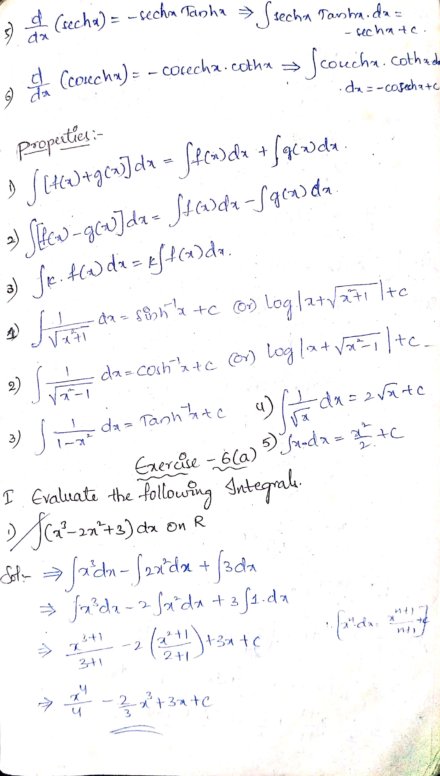 5) d/dx (sechx) = -sechx Tanhx ⇒ ∫sechx Tanhx.dx =
-sechx + c.
6) d/dx (cosechx) = -cosechx.cothx ⇒ ∫cosechx.cothx
.dx = -cosechx+c
Properties:-
1) ∫[f(x)+g(x)]dx = ∫f(x)dx + ∫g(x)dx.
2) ∫[f(x)-g(x)]dx = ∫f(x)dx - ∫g(x)dx.
3) ∫k.f(x)dx = k∫f(x)dx.
1) ∫ 1/√(x²+1) dx = sinh⁻¹x + c (or) log|x+√(x²+1)|+c
2) ∫ 1/√(x²-1) dx = cosh⁻¹x+c (or) log|x+√(x²-1)|+c.
3) ∫ 1/(1-x²) dx = Tanh⁻¹x+c 4) ∫ 1/√x dx = 2√x+c
5) ∫x.dx = x²/2 + c
Exercise - 6(a)
I Evaluate the following Integrals.
1) ∫(x³-2x²+3)dx on R
Sol:- ⇒ ∫x³dx - ∫2x²dx + ∫3dx
⇒ ∫x³dx - 2∫x²dx + 3∫1.dx
⇒ x³⁺¹/3+1 - 2(x²⁺¹/2+1) + 3x + c ∫xⁿdx xⁿ⁺¹/n+1 + c
⇒ x⁴/4 - 2/3 x³ + 3x + c